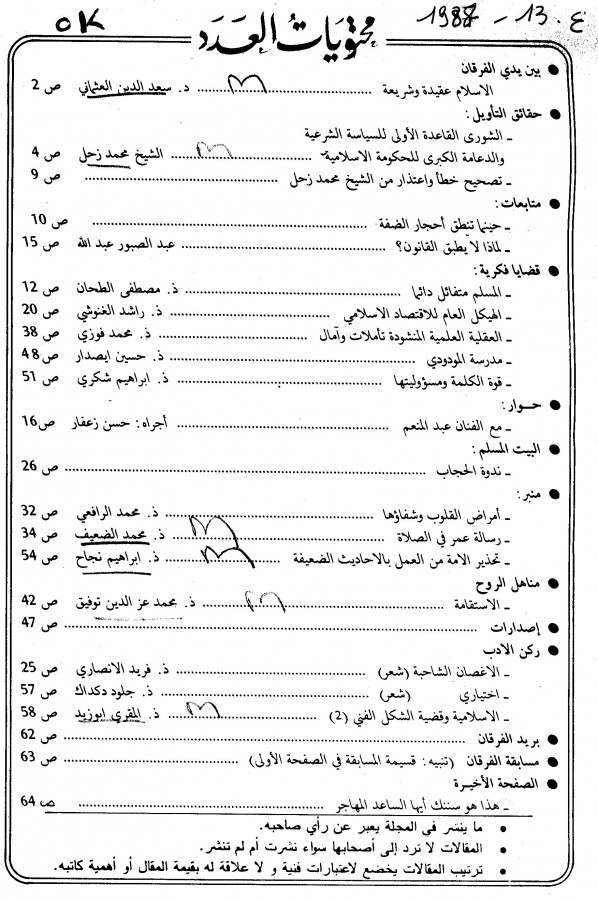 ok
ع 13 - 1988
محتويات العدد
● بين يدي الفرقان
الاسلام عقيدة وشريعة ........ د. سعد الدين العثماني ص 2
● حقائق التأويل :
ـ الشورى القاعدة الأولى للسياسة الشرعية
والدعامة الكبرى للحكومة الاسلامية ........ الشيخ محمد زحل ص 4
ـ تصحيح خطأ واعتذار من الشيخ محمد زحل ........ ص 9
● متابعات :
ـ حينما تنطق أحجار الضفة ........ ص 10
ـ لماذا لا يطبق القانون؟ ........ عبد الصبور عبد الله ص 15
● قضايا فكرية :
ـ المسلم متفائل دائما ........ ذ. مصطفى الطحان ص 12
ـ الهيكل العام للاقتصاد الاسلامي ........ ذ. راشد الغنوشي ص 20
ـ العقلية العلمية المنشودة تأملات وآمال ........ ذ. محمد فوزي ص 38
ـ مدرسة المودودي ........ ذ. حسين ايصدار ص 48
ـ قوة الكلمة ومسؤوليتها ........ ذ. ابراهيم شكري ص 51
● حـوار :
ـ مع الفنان عبد المنعم ........ أجراه: حسن زعفار ص16
● البيت المسلم :
ـ ندوة الحجاب ........ ص 26
● منبر :
ـ أمراض القلوب وشفاؤها ........ ذ. محمد الرافعي ص 32
ـ رسالة عمر في الصلاة ........ ذ. محمد الضعيف ص 34
ـ تحذير الامة من العمل بالاحاديث الضعيفة ........ ذ. ابراهيم نجاح ص 54
● مناهل الروح
ـ الاستقامة ........ ذ. محمد عز الدين توفيق ص 42
● إصدارات ........ ص 47
● ركن الادب
ـ الاغصان الشاحبة (شعر) ........ ذ. فريد الانصاري ص 25
ـ اختياري (شعر) ........ ذ. جلود دكداك ص 57
ـ الاسلامية وقضية الشكل الفني (2) ........ ذ. المقري ابوزيد ص 58
● بريد الفرقان ........ ص 62
● مسابقة الفرقان (تنبيه: قسيمة المسابقة في الصفحة الأولى) ........ ص 63
● الصفحة الأخيـرة
ـ هذا هو سننك أيها الساعد المهاجر ........ ص 64
• ما ينشر في المجلة يعبر عن رأي صاحبه.
• المقالات لا ترد إلى أصحابها سواء نشرت أم لم تنشر.
• ترتيب المقالات يخضع لاعتبارات فنية و لا علاقة له بقيمة المقال أو أهمية كاتبه.